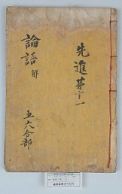 論語 解
先進第十一
五六合部